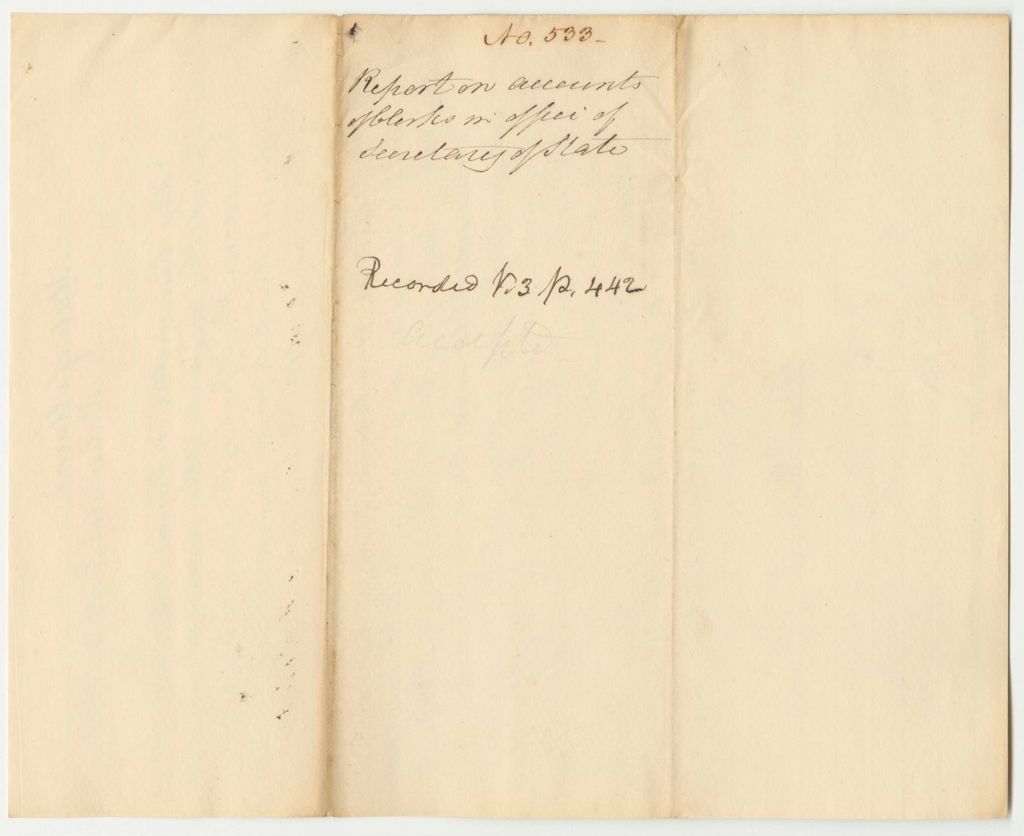 No. 533-
Report on accounts
of Clerks in office of
Secretary of State
Recorded V. 3 p. 442
Accepted